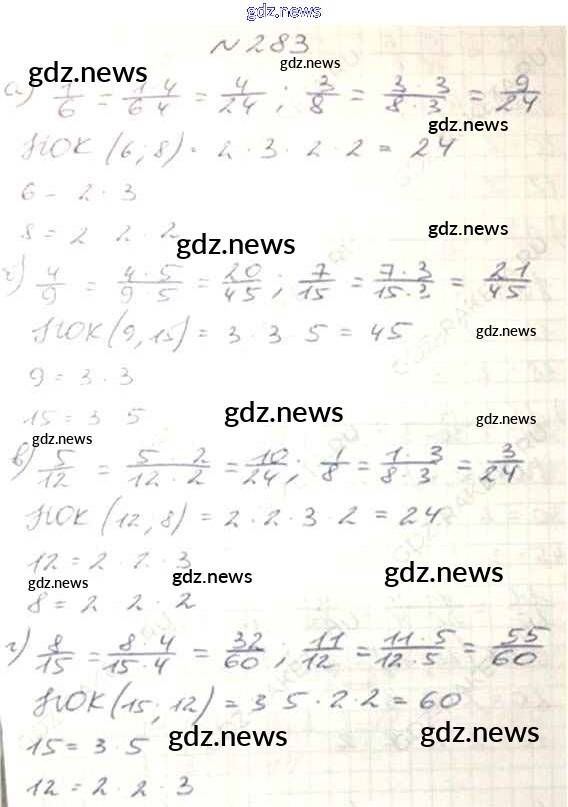 gdz.news
№ 283
gdz.news
gdz.news
а) 1/6 = 1·4/6·4 = 4/24 ; 3/8 = 3·3/8·3 = 9/24
gdz.news
НОК (6; 8) = 2 · 3 · 2 · 2 = 24
6 = 2 · 3
gdz.news
8 = 2 2 · 2
gdz.news
б) 4/9 = 4·5/9·5 = 20/45 ; 7/15 = 7·3/15·3 = 21/45
НОК (9, 15) = 3 · 3 · 5 = 45
gdz.news
9 = 3 · 3
gdz.news
15 = 3 5
gdz.news
gdz.news
в) 5/12 = 5·2/12·2 = 10/24 ; 1/8 = 1·3/8·3 = 3/24
НОК (12, 8) = 2 · 2 · 3 · 2 = 24
12 = 2 · 2 · 3
gdz.news
gdz.news
gdz.news
8 = 2 2 · 2
г) 8/15 = 8·4/15·4 = 32/60 ; 11/12 = 11·5/12·5 = 55/60
НОК (15; 12) = 3 5 · 2 · 2 = 60
15 = 3 · 5
gdz.news
gdz.news
12 = 2 · 2 · 3